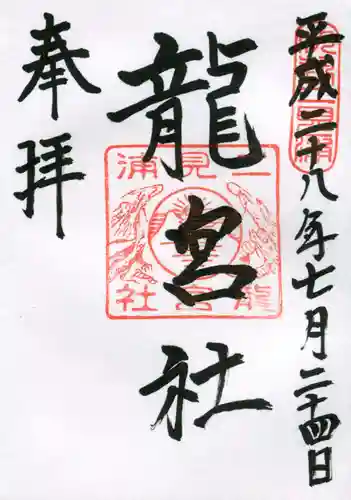 平成二十八年七月二十四日
龍宮社
奉拝
二見浦
龍宮社